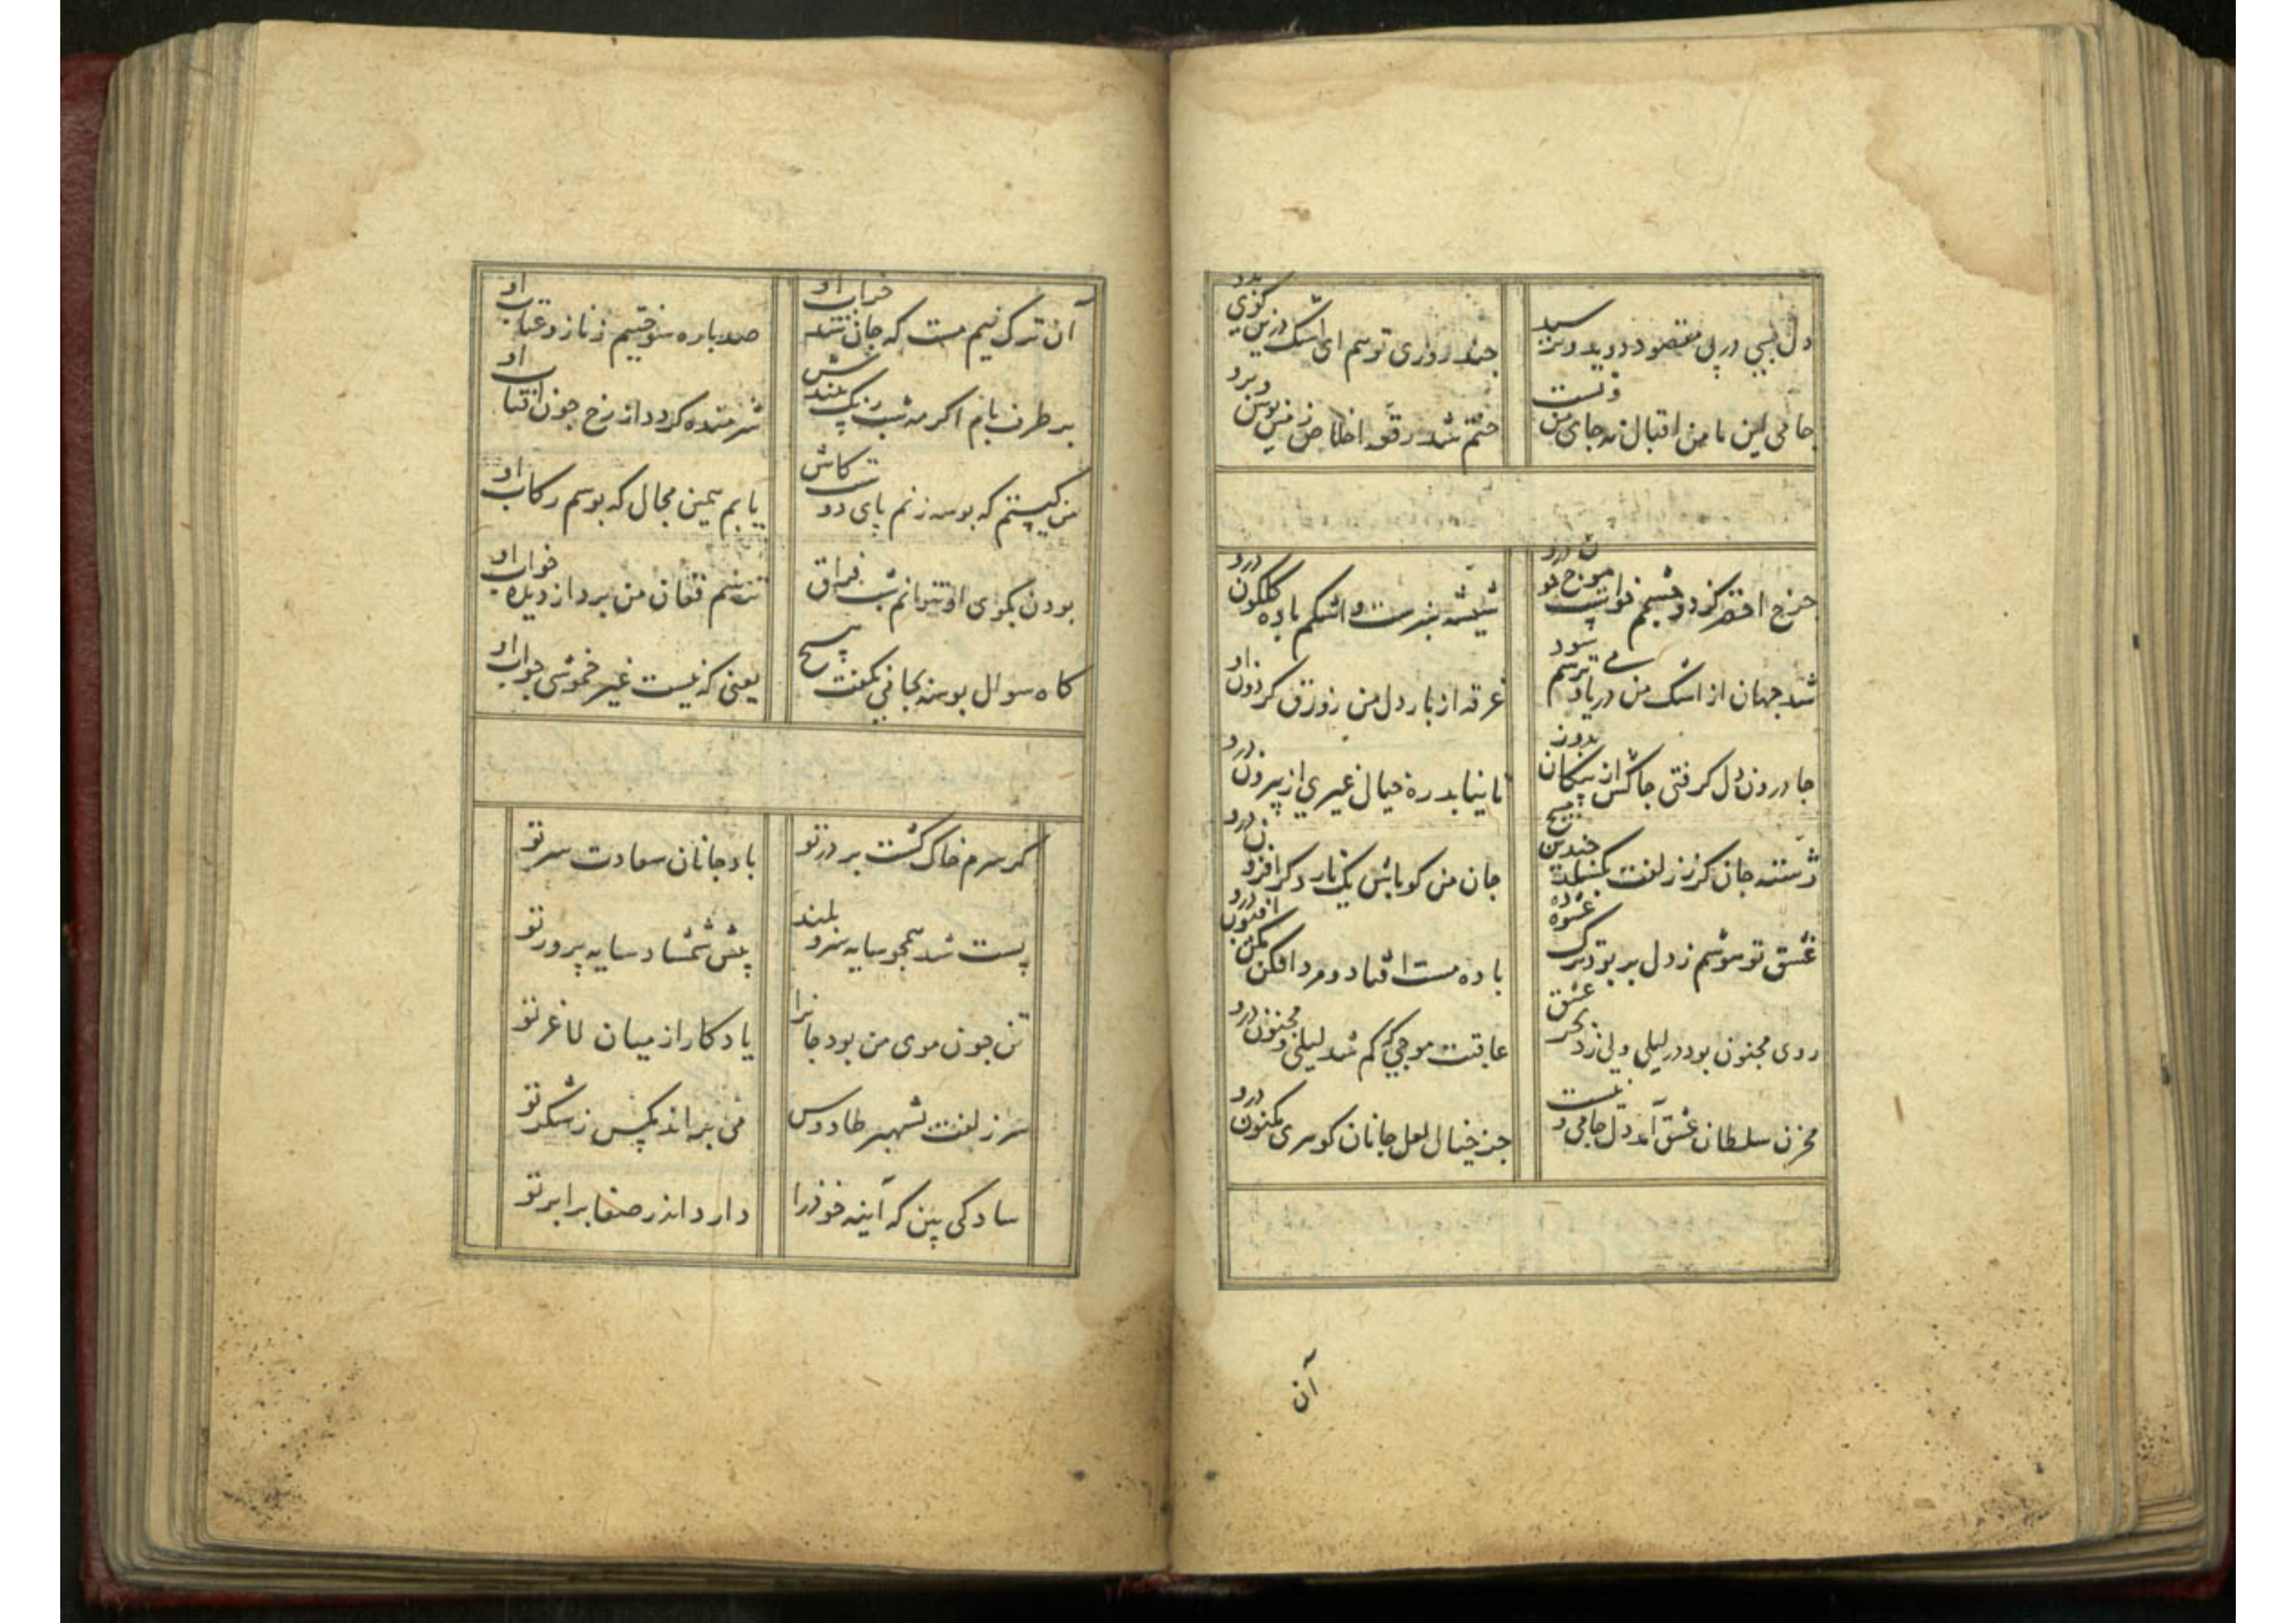 دل بسی در پی مقصود دوید و نرسید
چند روزی تو هم ای اشک درین کوی بدو
جامی این با من اقبال نه جای من و تست
ختم شد رقعه اخلاص زمین بوس و برو
شیشه سبزست و اشکم باده گلگون درو
شد جهان از اشک من دریا و می ترسم شود
غرقه از بار دل من زورق گردون درو
جا درون دل گرفتی چاکش از پیکان بدوز
تا نیابد ره خیال غیری از بیرون درو
رشته جان کز زلفت نگسلد
جان من کو باش یک تار دگر افزون درو
باده مست افتاد و مرد افکن مکن افیون درو
روی مجنون بود در لیلی ولی زد بحر عشق
عاقبت موجی که گم شد لیلی و مجنون درو
مخزن سلطان عشق آمد دل جامی و نیست
جز خیال لعل جانان گوهری مکنون درو
آن
آن ترک نیم مست که جان شد خراب او
صد باره سوختیم ز ناز و عتاب او
بر طرف بام اگر مه شب رنگ بیندش
شرمنده گردد از رخ چون آفتاب او
من کیستم که بوسه زنم پای دوست کاش
یابم همین مجال که بوسم رکاب او
بودن بکوی او نتوانم شب فراق
ترسم فغان من برد از دیده خواب او
گاه سوال بوسه بجامی نگفت هیچ
یعنی که نیست غیر خموشی جواب او
گر سرم خاک گشت بر در تو
باد جانان سعادت سر تو
پست شد همچو سایه سرو بلند
پیش شمشاد سایه پرور تو
تن چون موی من بود جانرا
یادکار از میان لاغر تو
سر زلفت شهپر طاووس
می براند مکس ز شکر تو
سادگی بین که آینه خود را
دارد اندر صفا برابر تو